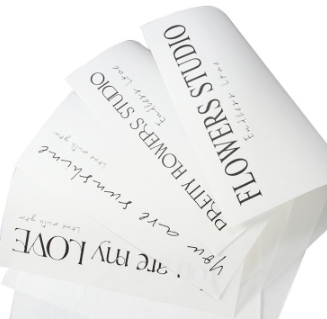 FLOWERS STUDIO
Endless love
PRETTY FLOWERS STUDIO
Endless love
you are sunshine
Love with you
are my LOVE
Love with you